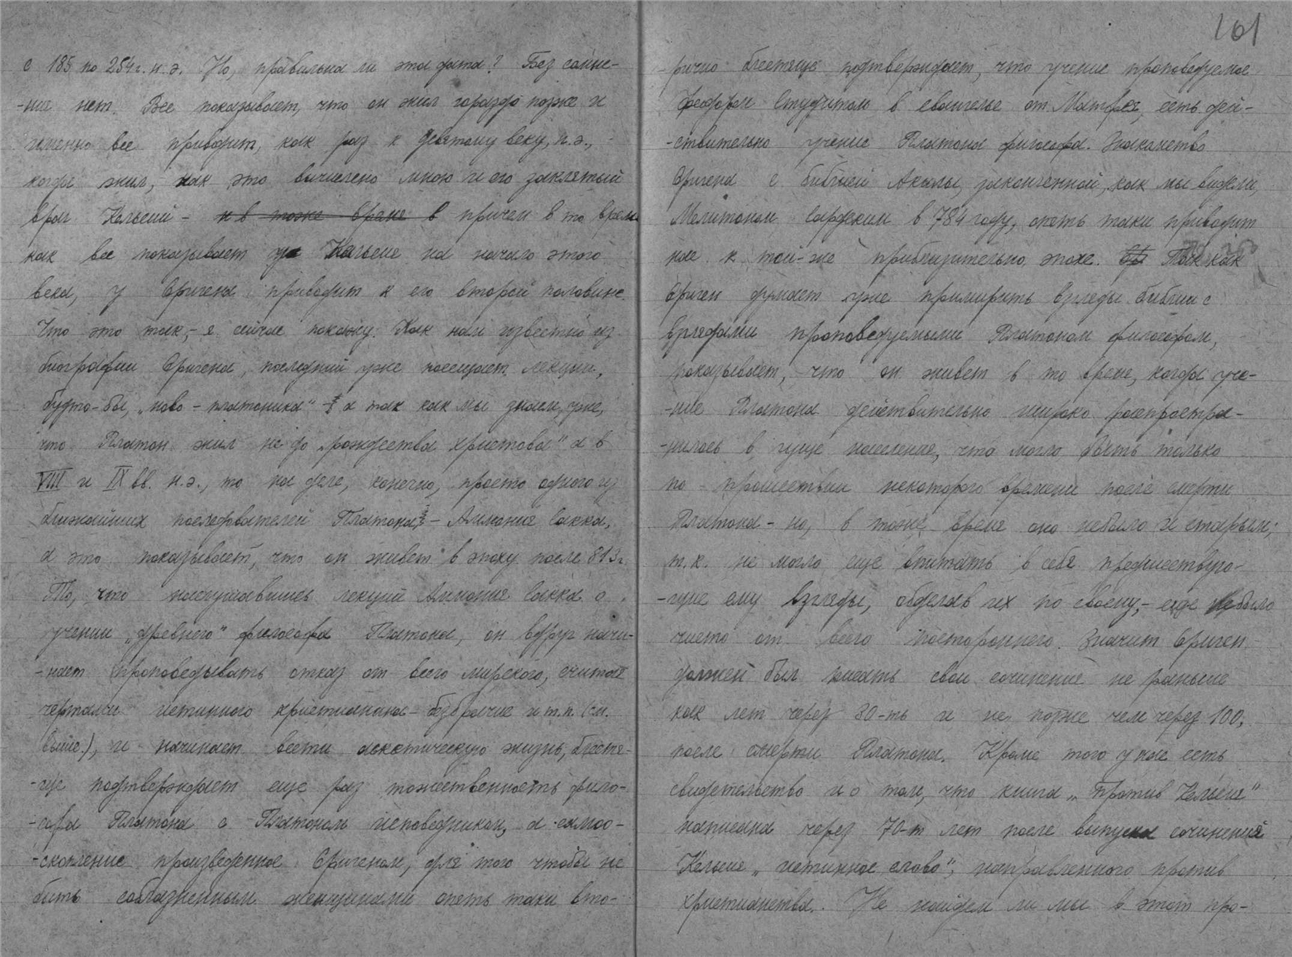 161
с 185 по 254 г. н. э. Но, правильна ли эта дата? Без сомне-
-ния нет. Все показывает, что он жил гораздо позже и
именно все приводит, как раз к девятому веку, н.э., -
когда жил, как это вычислено мною и его заклятый
враг Кельсий - и в тоже время в причем в то время
как все показывает у Кельсие на начало этого
века, у Оригена приводит к его второй половине.
Что это так, - я сейчас покажу. Как нам известно из
биографии Оригена, последний уже посещает лекции,
будто-бы, „ново-платоника" - а так как мы знаем, уже,
что Платон жил не до „рождества христова" а в
VIII и IX вв. н.э., то на деле, конечно, просто одного из
ближайших последователей Платона, - Аммония Сакка,
а это показывает, что он живет в эпоху после 813 г.
То, что наслушавшись лекций Аммония Сакка о
учении „древнего" философа Платона, он вдруг начи-
-нает проповедывать отказ от всего мирского, считая
чертами истинного христианина - безбрачие и т.п. (см.
выше), и начинает вести аскетическую жизнь, блестя-
-ще подтверждает еще раз тожественность фило-
-софа Платона с Платоном исповедником, а самоо-
-скопление произведенное Оригеном, для того чтобы не
быть соблазненным женщинами опять таки вто-
-рично блестяще подтверждает, что учение проповедуемое
Федором Студитом в евангелье от Матфея, есть дей-
-ствительно учение Платона философа. Знакомство
Оригена с библией Акилы, законченной, как мы видели,
Мелитоном Сардским в 784 году, опять таки приводит
нас к той-же приблизительно эпохе. Так как
Ориген думает уже примирить взгляды библии с
взглядами проповедуемыми Платоном философом,
показывает, что он живет в то время, когда уче-
-ние Платона действительно широко распростра-
-нилось в гуще населения, что могло быть только
по - прошествии некоторого времени после смерти
Платона - но, в тоже время оно небыло и старым,
т.к. не могло еще впитать в себя предшествую-
-щие ему взгляды, обделав их по своему, - еще небыло
чисто от всего постороннего. Значит Ориген
должен был писать свои сочинения не раньше
как лет через 80-ть и не позже чем через 100,
после смерти Платона. Кроме того у нас есть
свидетельство и о том, что книга „Против Кельсия"
написана через 70-т лет после выпуска сочинения
Кельсия „истинное слово", направленного против
христианства. Не найдем ли мы в этот про-